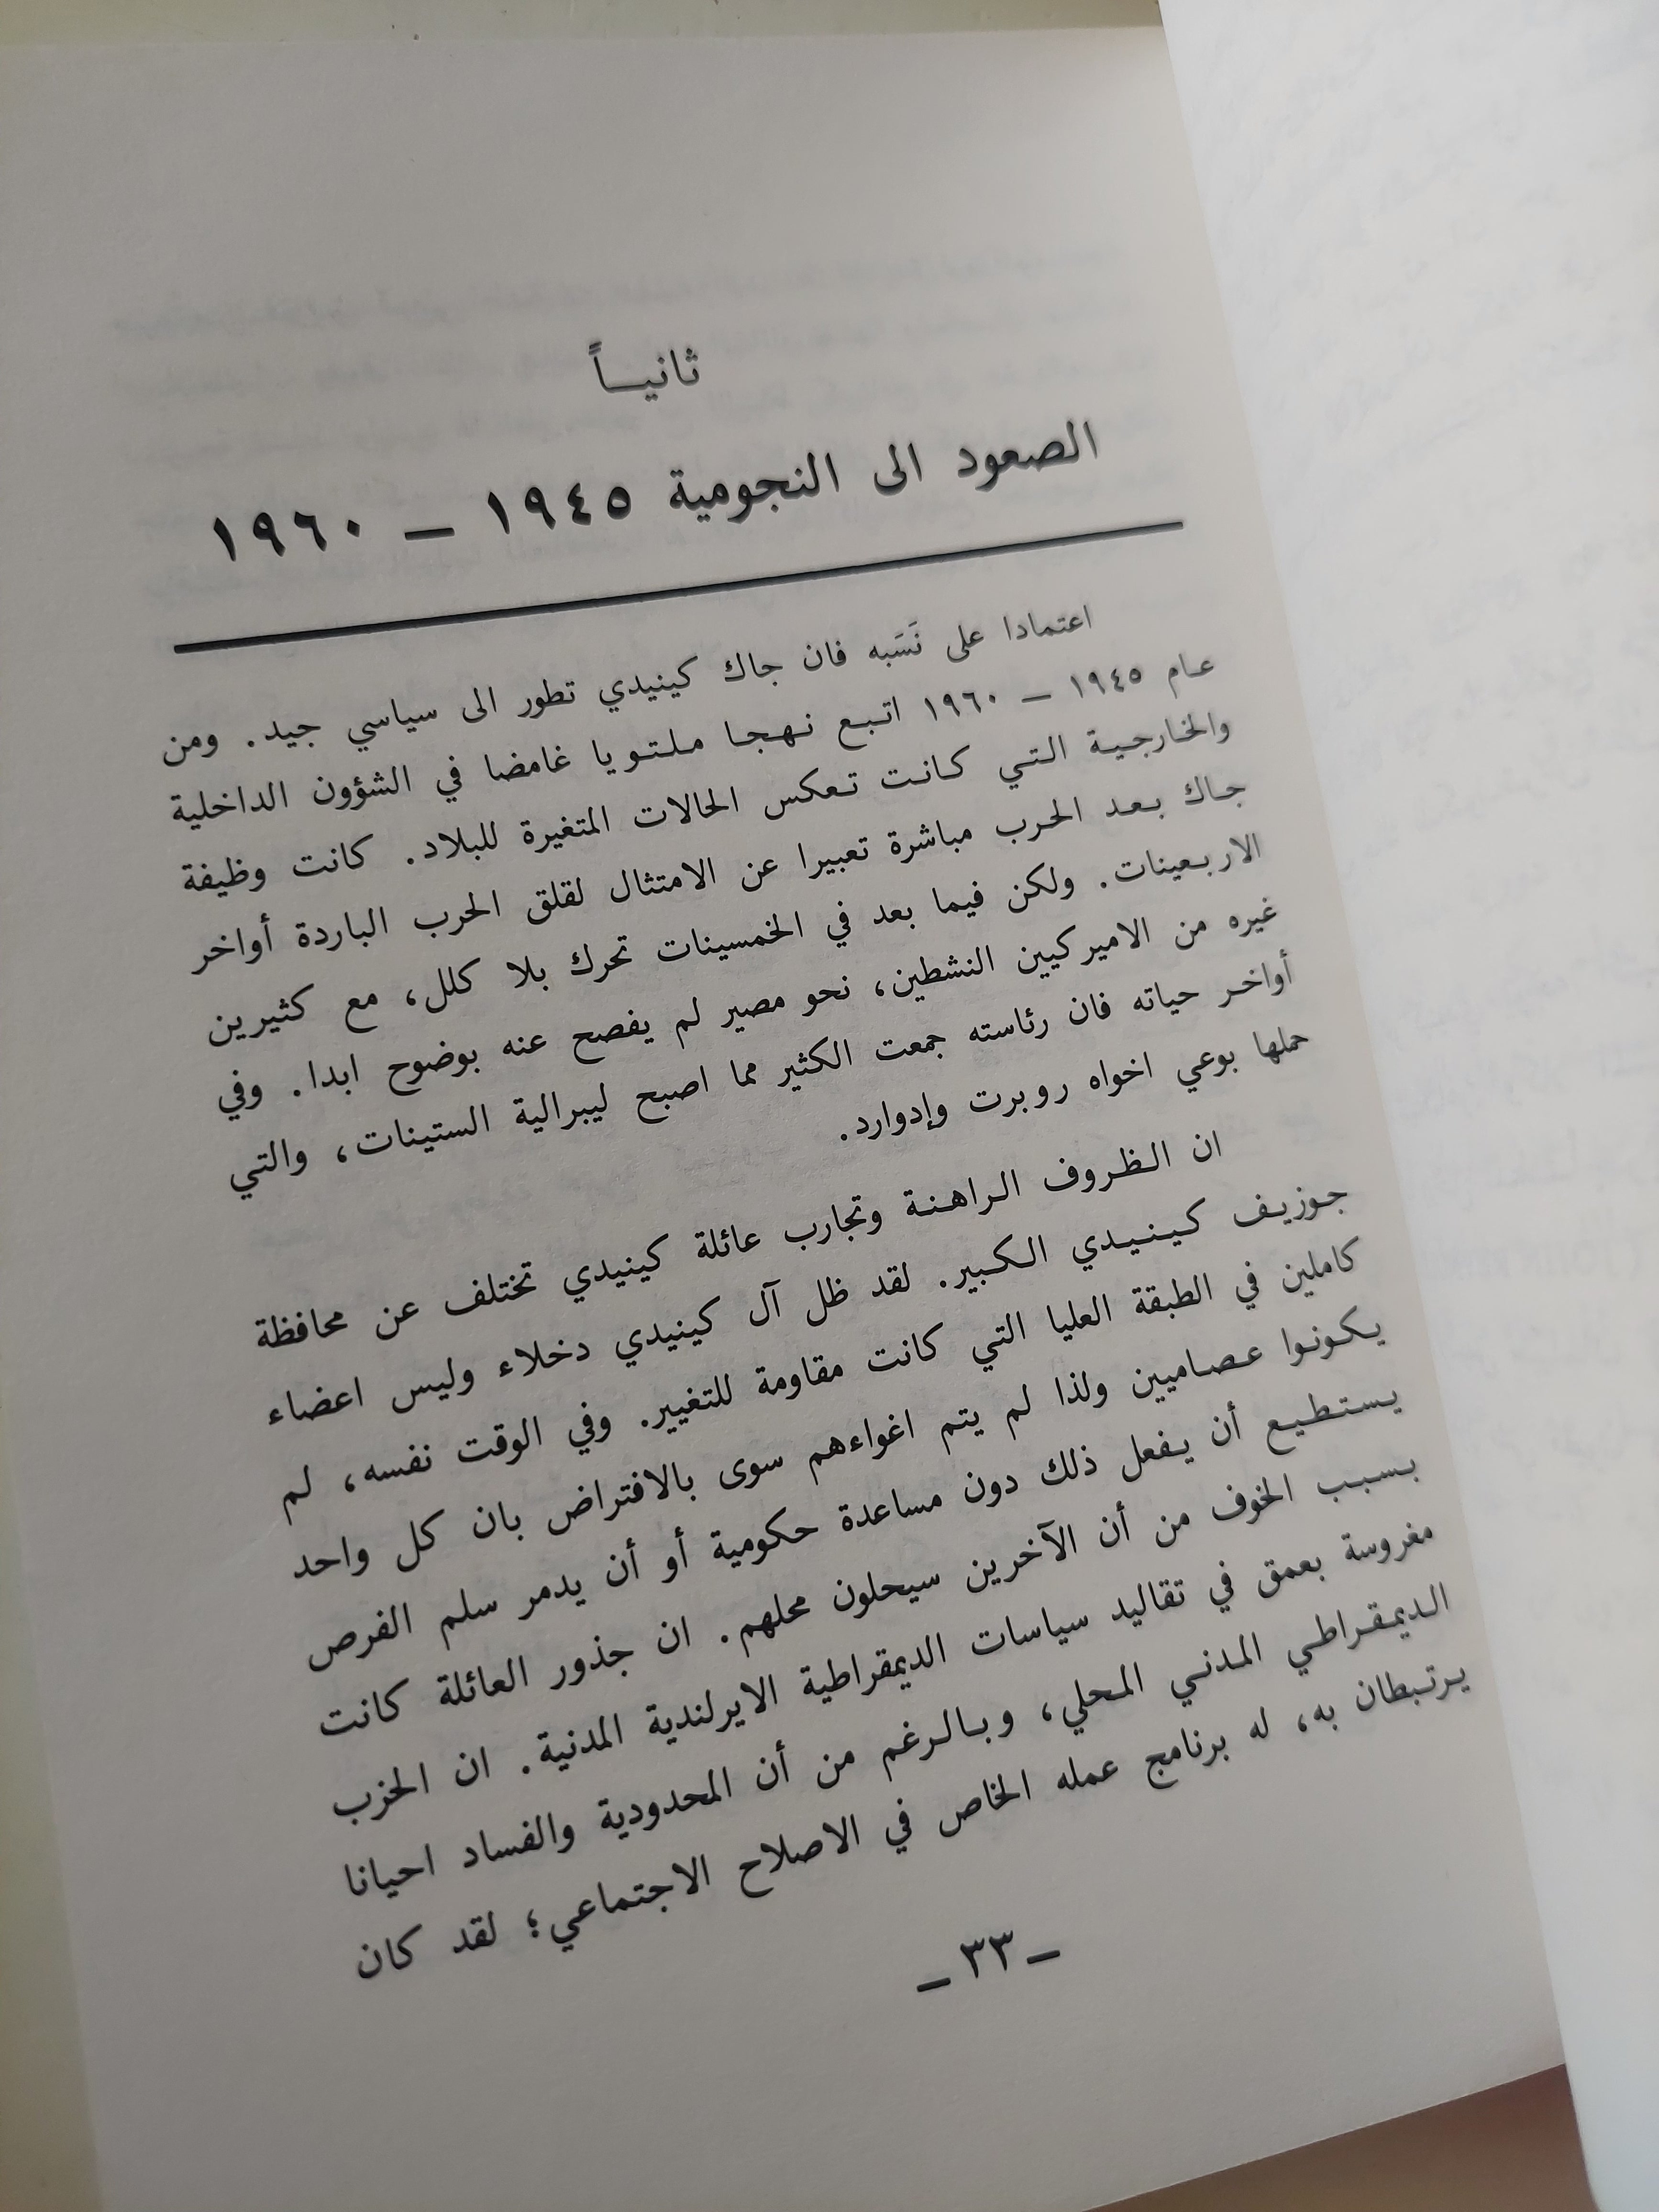 ثانيـاً
الصعود الى النجومية ١٩٤٥ ــ ١٩٦٠
اعتمادا على نَسَبه فان جاك كينيدي تطور الى سياسي جيد. ومن
عام ١٩٤٥ ــ ١٩٦٠ اتبع نهجا ملتويا غامضا في الشؤون الداخلية
والخارجية التي كانت تعكس الحالات المتغيرة للبلاد. كانت وظيفة
جاك بعد الحرب مباشرة تعبيرا عن الامتثال لقلق الحرب الباردة أواخر
الاربعينات. ولكن فيما بعد في الخمسينات تحرك بلا كلل، مع كثيرين
غيره من الاميركيين النشطين، نحو مصير لم يفصح عنه بوضوح ابدا. وفي
أواخر حياته فان رئاسته جمعت الكثير مما اصبح ليبرالية الستينات، والتي
حملها بوعي اخواه روبرت وإدوارد.
ان الظروف الراهنة وتجارب عائلة كينيدي تختلف عن محافظة
جوزيف كينيدي الكبير. لقد ظل آل كينيدي دخلاء وليس اعضاء
كاملين في الطبقة العليا التي كانت مقاومة للتغيير. وفي الوقت نفسه، لم
يكونوا عصاميين ولذا لم يتم اغواءهم سوى بالافتراض بان كل واحد
يستطيع أن يفعل ذلك دون مساعدة حكومية أو أن يدمر سلم الفرص
بسبب الخوف من أن الآخرين سيحلون محلهم. ان جذور العائلة كانت
مغروسة بعمق في تقاليد سياسات الديمقراطية الايرلندية المدنية. ان الحزب
الديمقراطي المدني المحلي، وبالرغم من أن المحدودية والفساد احيانا
يرتبطان به، له برنامج عمله الخاص في الاصلاح الاجتماعي؛ لقد كان
ـ ٣٣ ـ